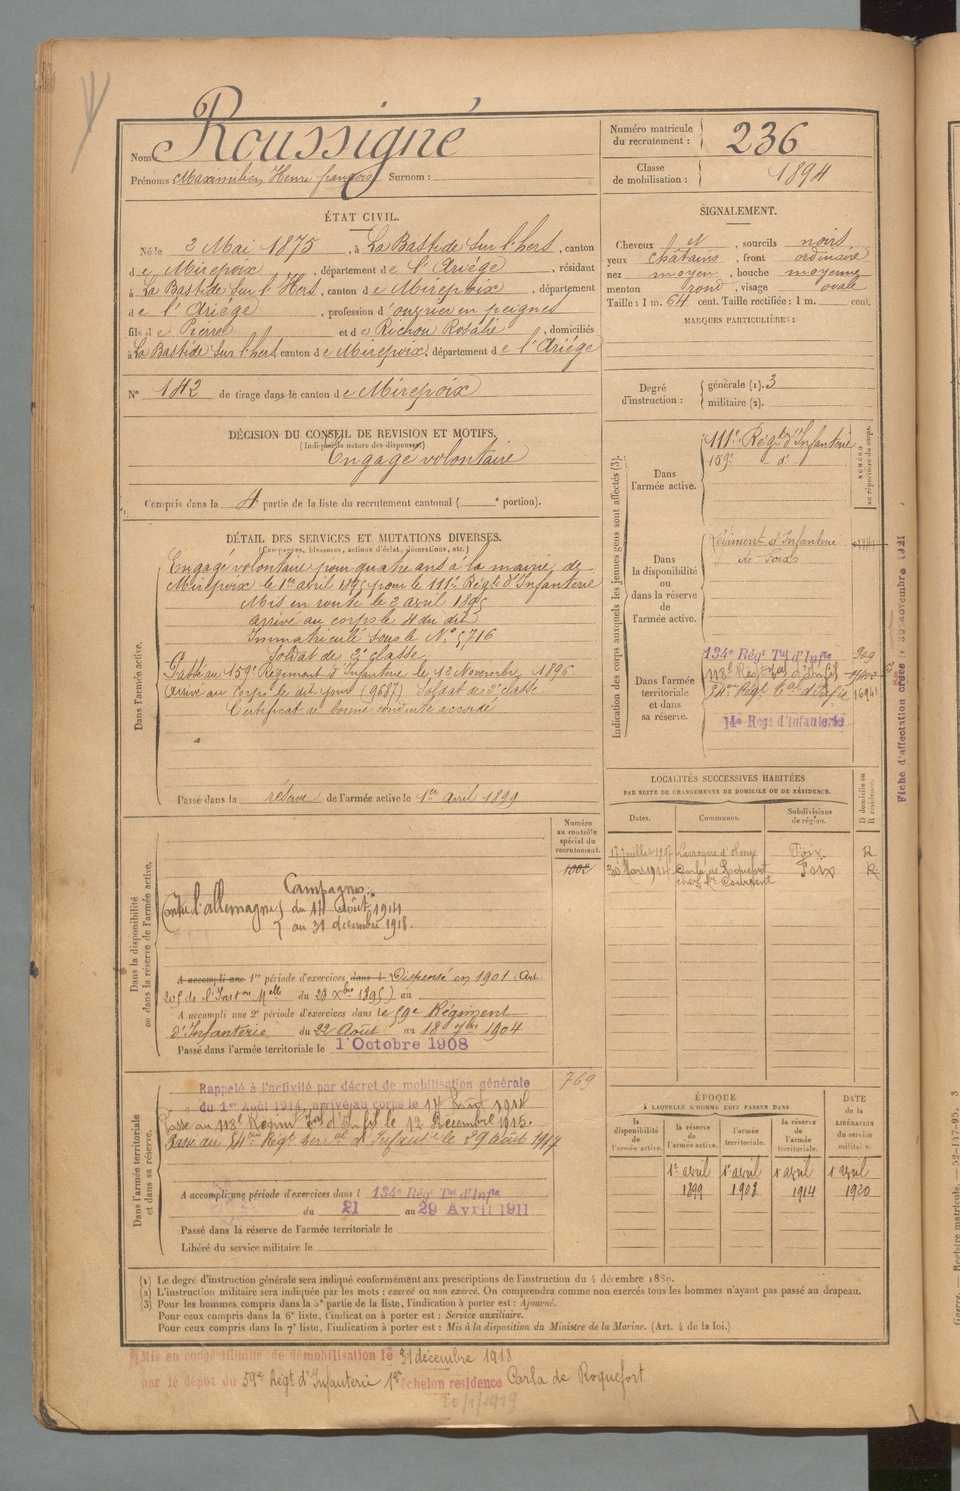 Nom Roussigné
Prénoms Maximilien Henri françois Surnom :
Numéro matricule du recrutement : 236
Classe de mobilisation : 1894
ÉTAT CIVIL.
Né le 2 Mai 1875, à La Bastide Sur l'hers, canton
de Mirepoix, département de l'Ariége, résidant
à La Bastide Sur l'Hers, canton de Mirepoix, département
de l'Ariége, profession d'ouvrier en peignes
fils de Pierre et de Richou Rosalie, domiciliés
à La Bastide Sur l'hers canton de Mirepoix, département de l'Ariége
N° 142 de tirage dans le canton de Mirepoix
SIGNALEMENT.
Cheveux et, sourcils noirs
yeux châtains, front ordinaire
nez moyen, bouche moyenne
menton rond, visage ovale
Taille : 1 m. 64 cent. Taille rectifiée : 1 m. cent.
MARQUES PARTICULIÈRES :
Degré d'instruction : générale (1). 3
militaire (2).
DÉCISION DU CONSEIL DE REVISION ET MOTIFS.
(Indiquer la nature des dispenses)
Engagé volontaire
Compris dans la 4 partie de la liste du recrutement cantonal ( e portion).
DÉTAIL DES SERVICES ET MUTATIONS DIVERSES.
(Campagnes, blessures, actions d'éclat, décorations, etc.)
Dans l'armée active.
Engagé volontaire pour quatre ans à la mairie de
Mirepoix le 1er avril 1895 pour le 111e Régt d'Infanterie
Mis en route le 2 avril 1895
arrivé au corps le 4 du dit
Immatriculé sous le N° 5716
Soldat de 2e classe
Passé au 159e Régiment d'Infanterie le 12 Novembre 1896.
Arrivé au Corps le dit jour (9687) Soldat de 2e classe
Certificat de bonne conduite accordé
Passé dans la réserve de l'armée active le 1er Avril 1899
Indication des corps auxquels les jeunes gens sont affectés (3).
NUMÉRO au répertoire du corps.
Dans l'armée active.
111e Régt d'Infanterie
159e - d°
Dans la disponibilité ou dans la réserve de l'armée active.
Régiment d'Infanterie
de Foix
Dans l'armée territoriale et dans sa réserve.
134e Régt Tal d'Infie 309
118e Régt Tal d'Inf
84e Régt Tal d'Infie
14e Regt d'Infanterie
Fiche d'affectation créée le 30 novembre 1921
LOCALITÉS SUCCESSIVES HABITÉES
PAR SUITE DE CHANGEMENTS DE DOMICILE OU DE RÉSIDENCE.
Dates. Communes. Subdivisions de région. D domicile ou R résidence.
17 juillet 1907 Laroque d'olmes Foix R
30 Mars 1914 Carla de Roquefort Foix R
Dans la disponibilité ou dans la réserve de l'armée active.
Numéro au contrôle spécial du recrutement.
1002
Campagne :
Contre l'allemagne du 14 Août 1914
au 31 décembre 1918.
A accompli une 1re période d'exercices dans l Dispensé en 1901. Art
205 de l'Inst on Melle du 28 Xbre 1895) au
A accompli une 2e période d'exercices dans le 59e Régiment
d'Infanterie du 22 Août au 18 7bre 1904
Passé dans l'armée territoriale le 1 Octobre 1908
Dans l'armée territoriale et dans sa réserve.
769
Rappelé à l'activité par décret de mobilisation générale
du 1er Août 1914, arrivé au corps le 14 Août 1914
Passé au 118e Régimt Tal d'Inf le 12 Décembre 1915.
Passé au 84e Régt terral d'Infanie le 29 août 1917
A accompli une période d'exercices dans l 134e Régt Tal d'Infie
du 21 au 29 Avril 1911
Passé dans la réserve de l'armée territoriale le
Libéré du service militaire le
ÉPOQUE
À LAQUELLE L'HOMME DOIT PASSER DANS
DATE de la LIBÉRATION du service militaire.
la disponibilité de l'armée active.
la réserve de l'armée active.
l'armée territoriale.
la réserve de l'armée territoriale.
1er avril 1 avril 1 avril 1 avril
1899 1908 1914 1920
(1) Le degré d'instruction générale sera indiqué conformément aux prescriptions de l'instruction du 4 décembre 1889.
(2) L'instruction militaire sera indiquée par les mots : exercé ou non exercé. On comprendra comme non exercés tous les hommes n'ayant pas passé au drapeau.
(3) Pour les hommes compris dans la 5e partie de la liste, l'indication à porter est : Ajourné.
Pour ceux compris dans la 6e liste, l'indication à porter est : Service auxiliaire.
Pour ceux compris dans la 7e liste, l'indication à porter est : Mis à la disposition du Ministre de la Marine. (Art. 4 de la loi.)
Mis en congé illimité de démobilisation le 31 décembre 1918
par le dépot du 59e Régt d'Infanterie 1er échelon residence Carla de Roquefort